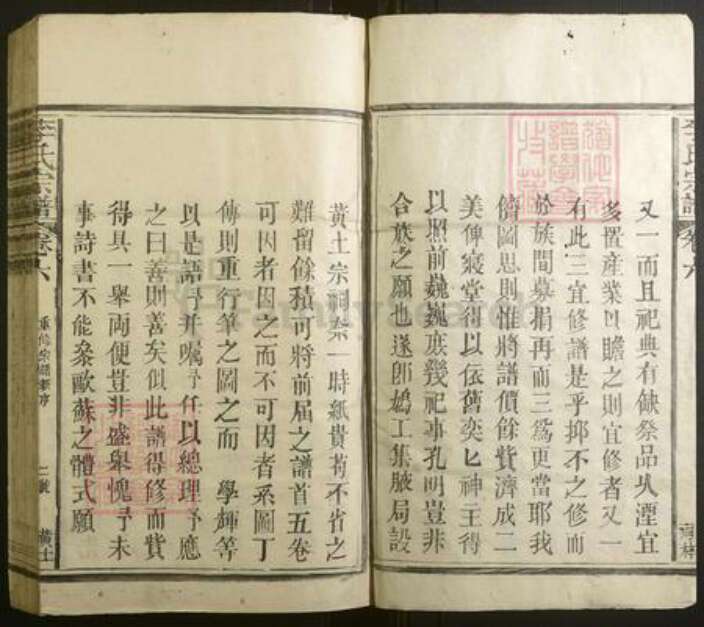 李氏宗譜
卷六
又一而且祀典有缺祭品失湮宜
多置産業以贍之則宜修者又一
有此三宜修譜是乎抑不之修而
於族間募捐再而三爲更當耶我
儕圖思則惟將譜價餘貲濟成二
美俾寢堂得以依舊奕匕神主得
以照前巍巍庶幾祀事孔明豈非
合族之願也遂卽鳩工集腋局設
黃土宗祠奈一時紙貴苟不省之
難留餘積可將前屆之譜首五卷
可因者因之而不可因者系圖丁
傳則重行筆之圖之而 學輝等
以是語予幷囑予仟以總理予應
之曰善則善矣但此譜得修而貲
得具一舉兩便豈非盛舉愧予未
事詩書不能叅歐蘇之體式願
李氏宗譜
卷六
重修宗譜新序
二號